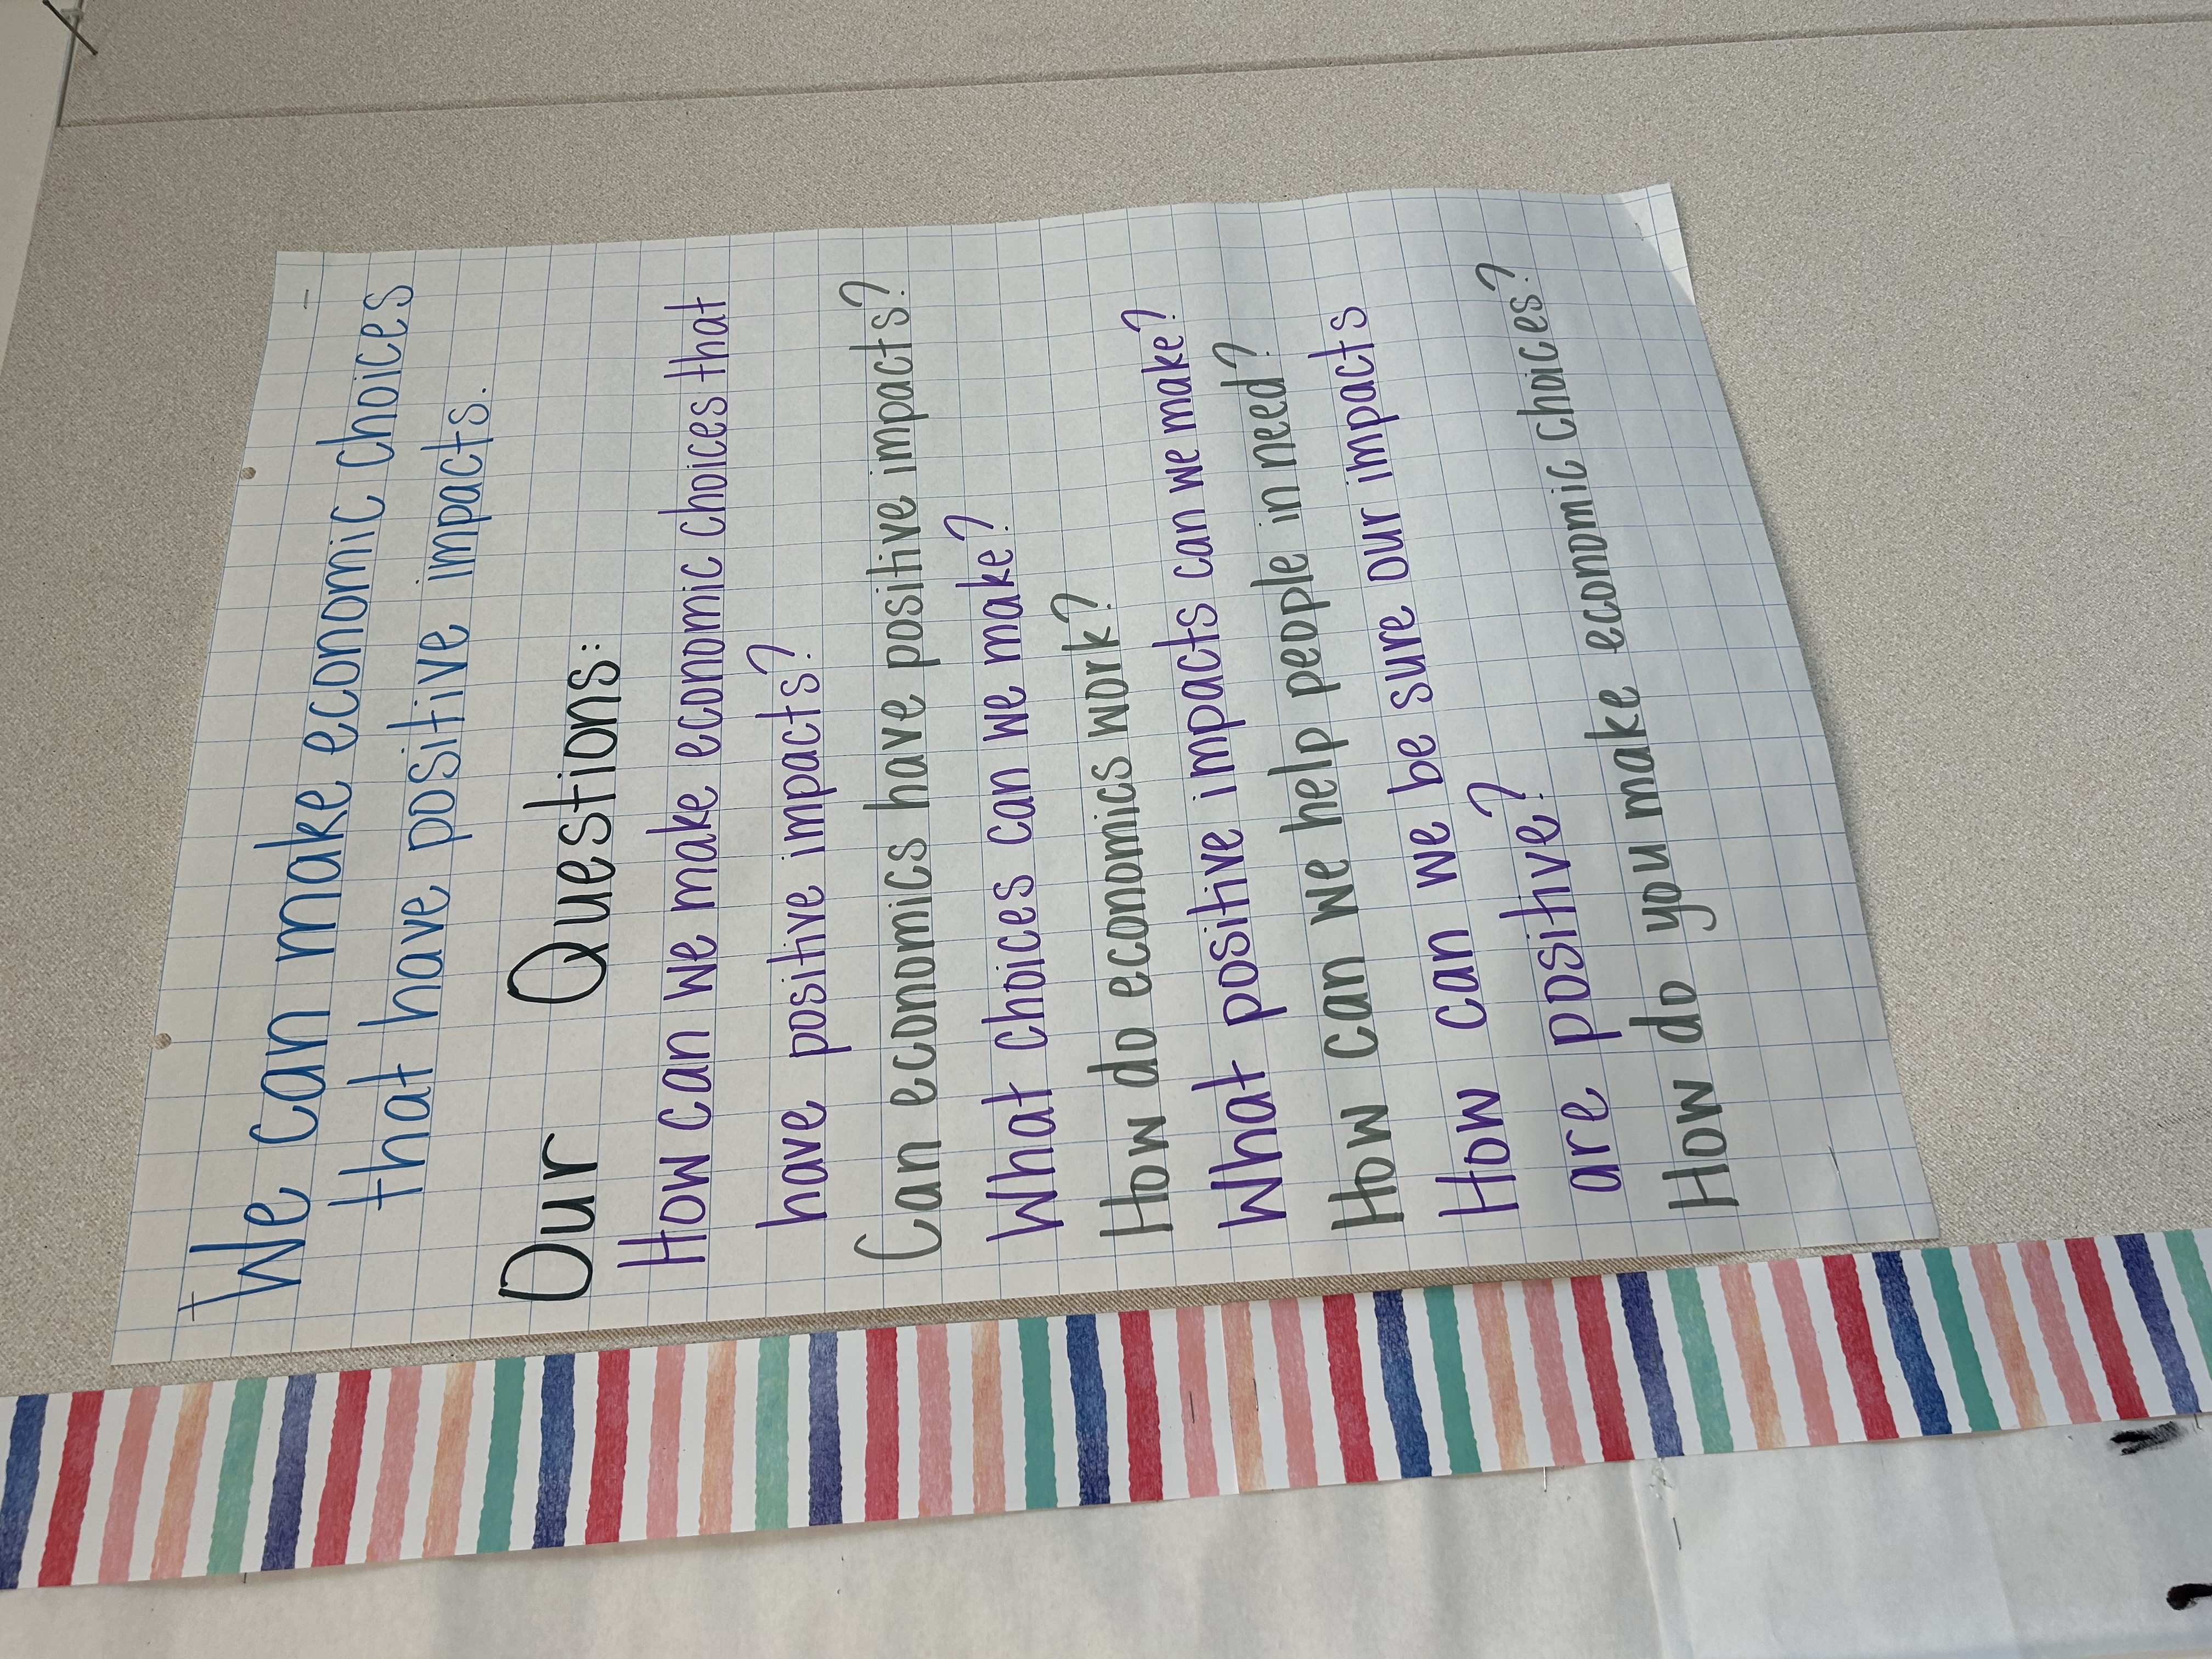 We can make economic choices
that have positive impacts.
Our Questions:
How can we make economic choices that
have positive impacts?
Can economics have positive impacts?
What choices can we make?
How do economics work?
What positive impacts can we make?
How can we help people in need?
How can we be sure our impacts
are positive?
How do you make economic choices?